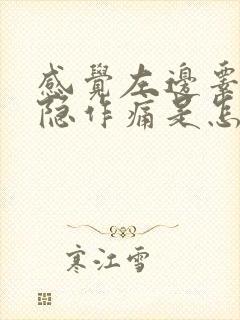 感覺左邊
隐作痛是怎
寒江雪